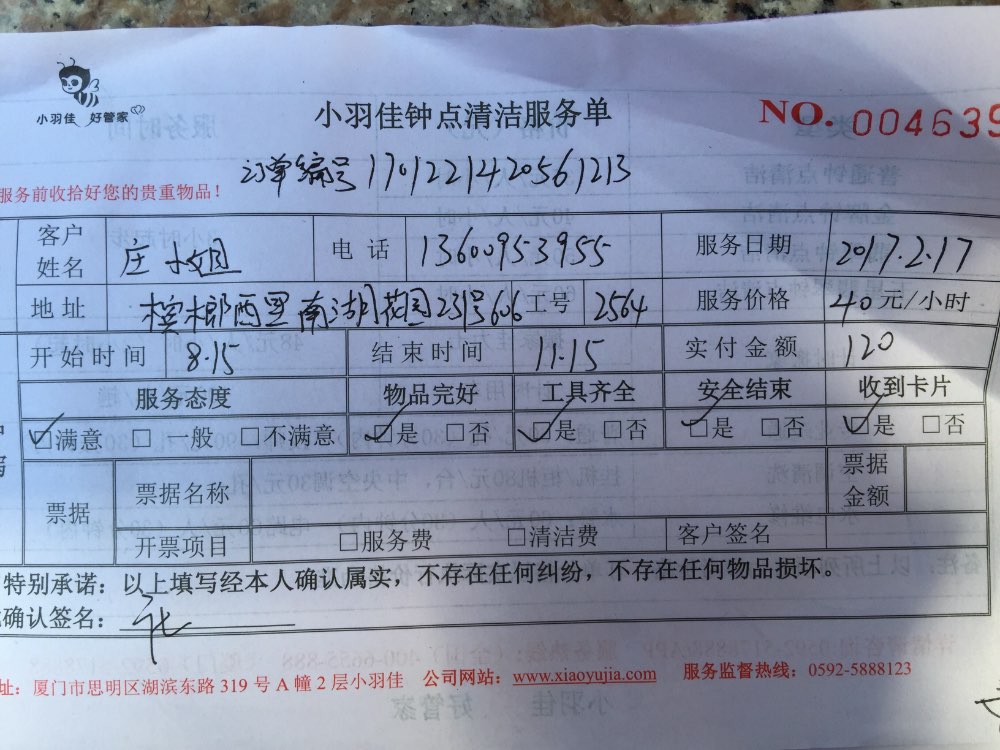 小羽佳 好管家
小羽佳钟点清洁服务单
NO. 004639
订单编号 1701221420561213
服务前收拾好您的贵重物品！
客户姓名 庄小姐 电话 13600953955 服务日期 2017.2.17
地址 槟榔西里南湖花园23号606 工号 2564 服务价格 40元/小时
开始时间 8.15 结束时间 11.15 实付金额 120
服务态度 物品完好 工具齐全 安全结束 收到卡片
☑满意 □一般 □不满意 ☑是 □否 ☑是 □否 ☑是 □否 ☑是 □否
票据 票据名称 票据金额
开票项目 □服务费 □清洁费 客户签名
特别承诺：以上填写经本人确认属实，不存在任何纠纷，不存在任何物品损坏。
确认签名：
址：厦门市思明区湖滨东路 319 号 A 幢 2 层小羽佳 公司网站：www.xiaoyujia.com 服务监督热线：0592-5888123